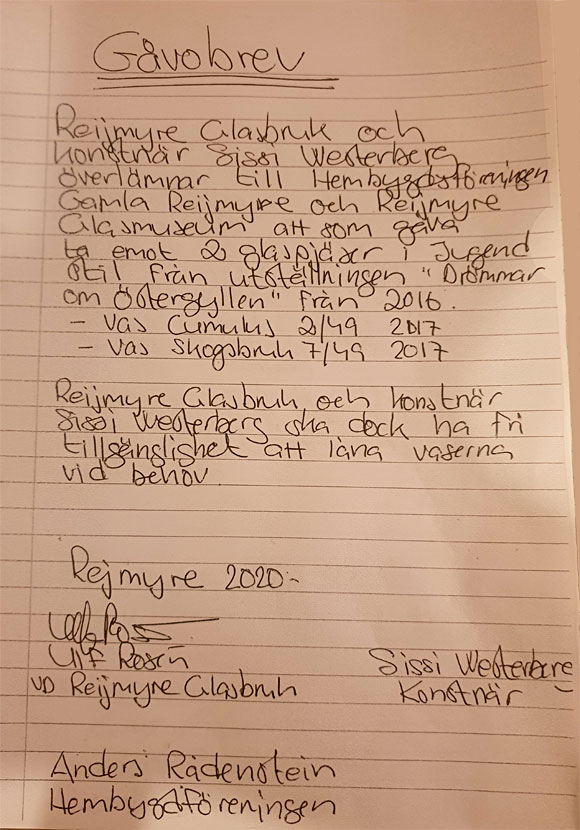 Gåvobrev
Reijmyre Glasbruk och
konstnär Sissi Westerberg
överlämnar till Hembygdsföreningen
Gamla Reijmyre och Reijmyre
Glasmuseum att som gåva
ta emot 2 glaspjäser i Jugend
stil från utställningen "Drömmar
om Östergyllen" från 2016.
- Vas Cumulus 2/49 2017
- Vas Skogsbruk 7/49 2017
Reijmyre Glasbruk och konstnär
Sissi Westerberg ska dock ha fri
tillgänglighet att låna vaserna
vid behov
Rejmyre 2020:-
Ulf Rosén
VD Reijmyre Glasbruk
Sissi Westerberg
Konstnär
Anders Rådenstein
Hembygdföreningen